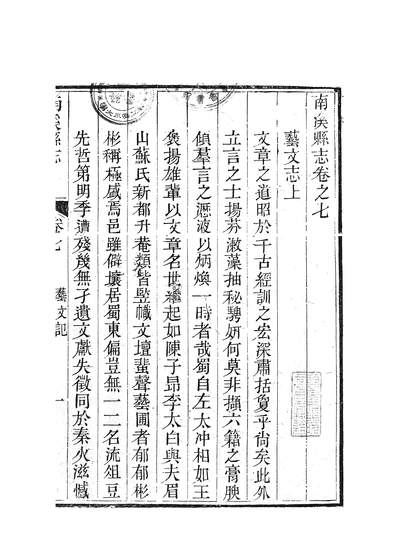 南溪縣志卷之七
藝文志上
文章之道昭於千古經訓之宏深肅括夐乎尚矣此外
立言之士揚芬漱藻抽秘騁妍何莫非擷六籍之膏腴
傾羣言之瀝液以炳煥一時者哉蜀自左太冲相如王
襃揚雄輩以文章名世繼起如陳子昂李太白與夫眉
山蘇氏新都升菴類皆豎幟文壇蜚聲藝圃者郁郁彬
彬稱極盛焉邑雖僻壤居蜀東偏豈無一二名流俎豆
先哲第明季遭殘幾無孑遺文獻失徵同於秦火滋憾
南溪縣志
卷七
藝文記
一